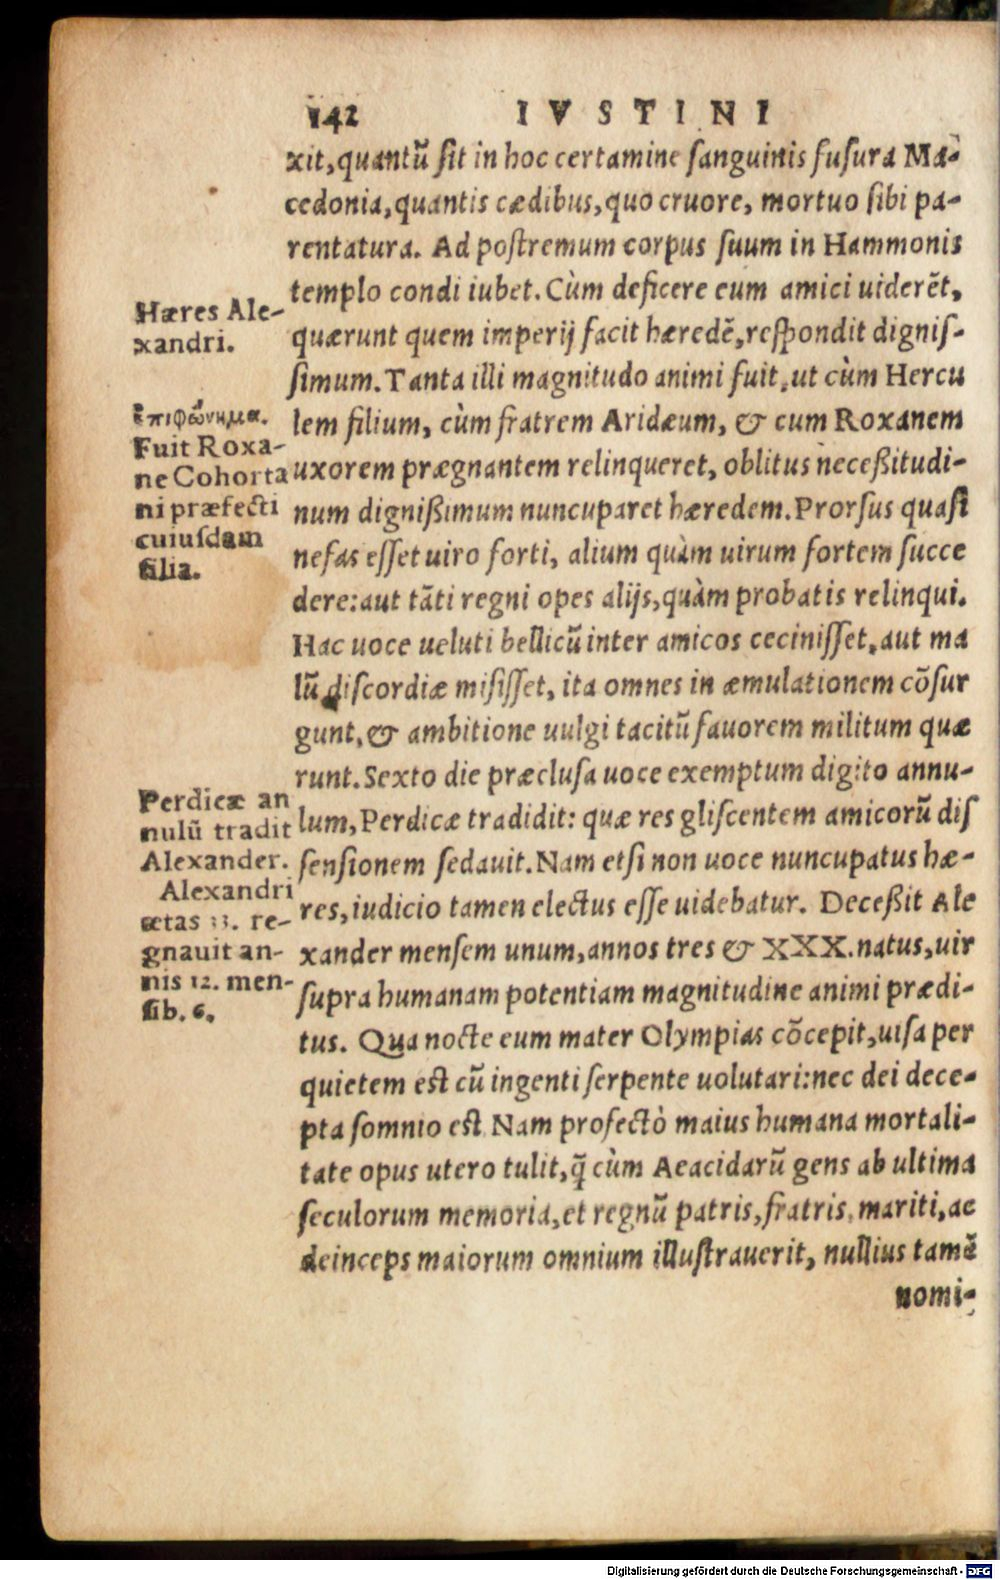 142 IVSTINI
xit,quantũ sit in hoc certamine sanguinis fusura Ma-
cedonia,quantis cædibus,quo cruore, mortuo sibi pa-
rentatura. Ad postremum corpus suum in Hammonis
templo condi iubet. Cùm deficere eum amici uiderẽt,
quærunt quem imperij facit hæredẽ,respondit dignis-
simum. Tanta illi magnitudo animi fuit,ut cùm Hercu
lem filium, cùm fratrem Aridæum, & cum Roxanem
uxorem prægnantem relinqueret, oblitus neceßitudi-
num dignißimum nuncuparet hæredem. Prorsus quasi
nefas esset uiro forti, alium quàm uirum fortem succe
dere:aut tãti regni opes alijs,quàm probatis relinqui.
Hac uoce ueluti bellicũ inter amicos cecinisset,aut ma
lũ discordiæ misisset, ita omnes in æmulationem cõsur
gunt,& ambitione uulgi tacitũ fauorem militum quæ
runt. Sexto die præclusa uoce exemptum digito annu-
lum, Perdicæ tradidit: quæ res gliscentem amicorũ dis
sensionem sedauit. Nam etsi non uoce nuncupatus hæ-
res,iudicio tamen electus esse uidebatur. Deceßit Ale
xander mensem unum,annos tres & XXX. natus,uir
supra humanam potentiam magnitudine animi prædi-
tus. Qua nocte eum mater Olympias cõcepit,uisa per
quietem est cũ ingenti serpente uolutari:nec dei dece-
pta somnio est Nam profectò maius humana mortali-
tate opus utero tulit,q̃ cùm Aeacidarũ gens ab ultima
seculorum memoria,et regnũ patris,fratris,mariti,ac
deinceps maiorum omnium illustrauerit, nullius tamẽ
nomi-
Hæres Ale-
xandri.
ἐπιφώνημα.
Fuit Roxa-
ne Cohorta
ni præfecti
cuiusdam
filia.
Perdicæ an
nulũ tradit
Alexander.
Alexandri
ætas 33. re-
gnauit an-
nis 12. men-
sib. 6.
Digitalisierung gefördert durch die Deutsche Forschungsgemeinschaft - DFG